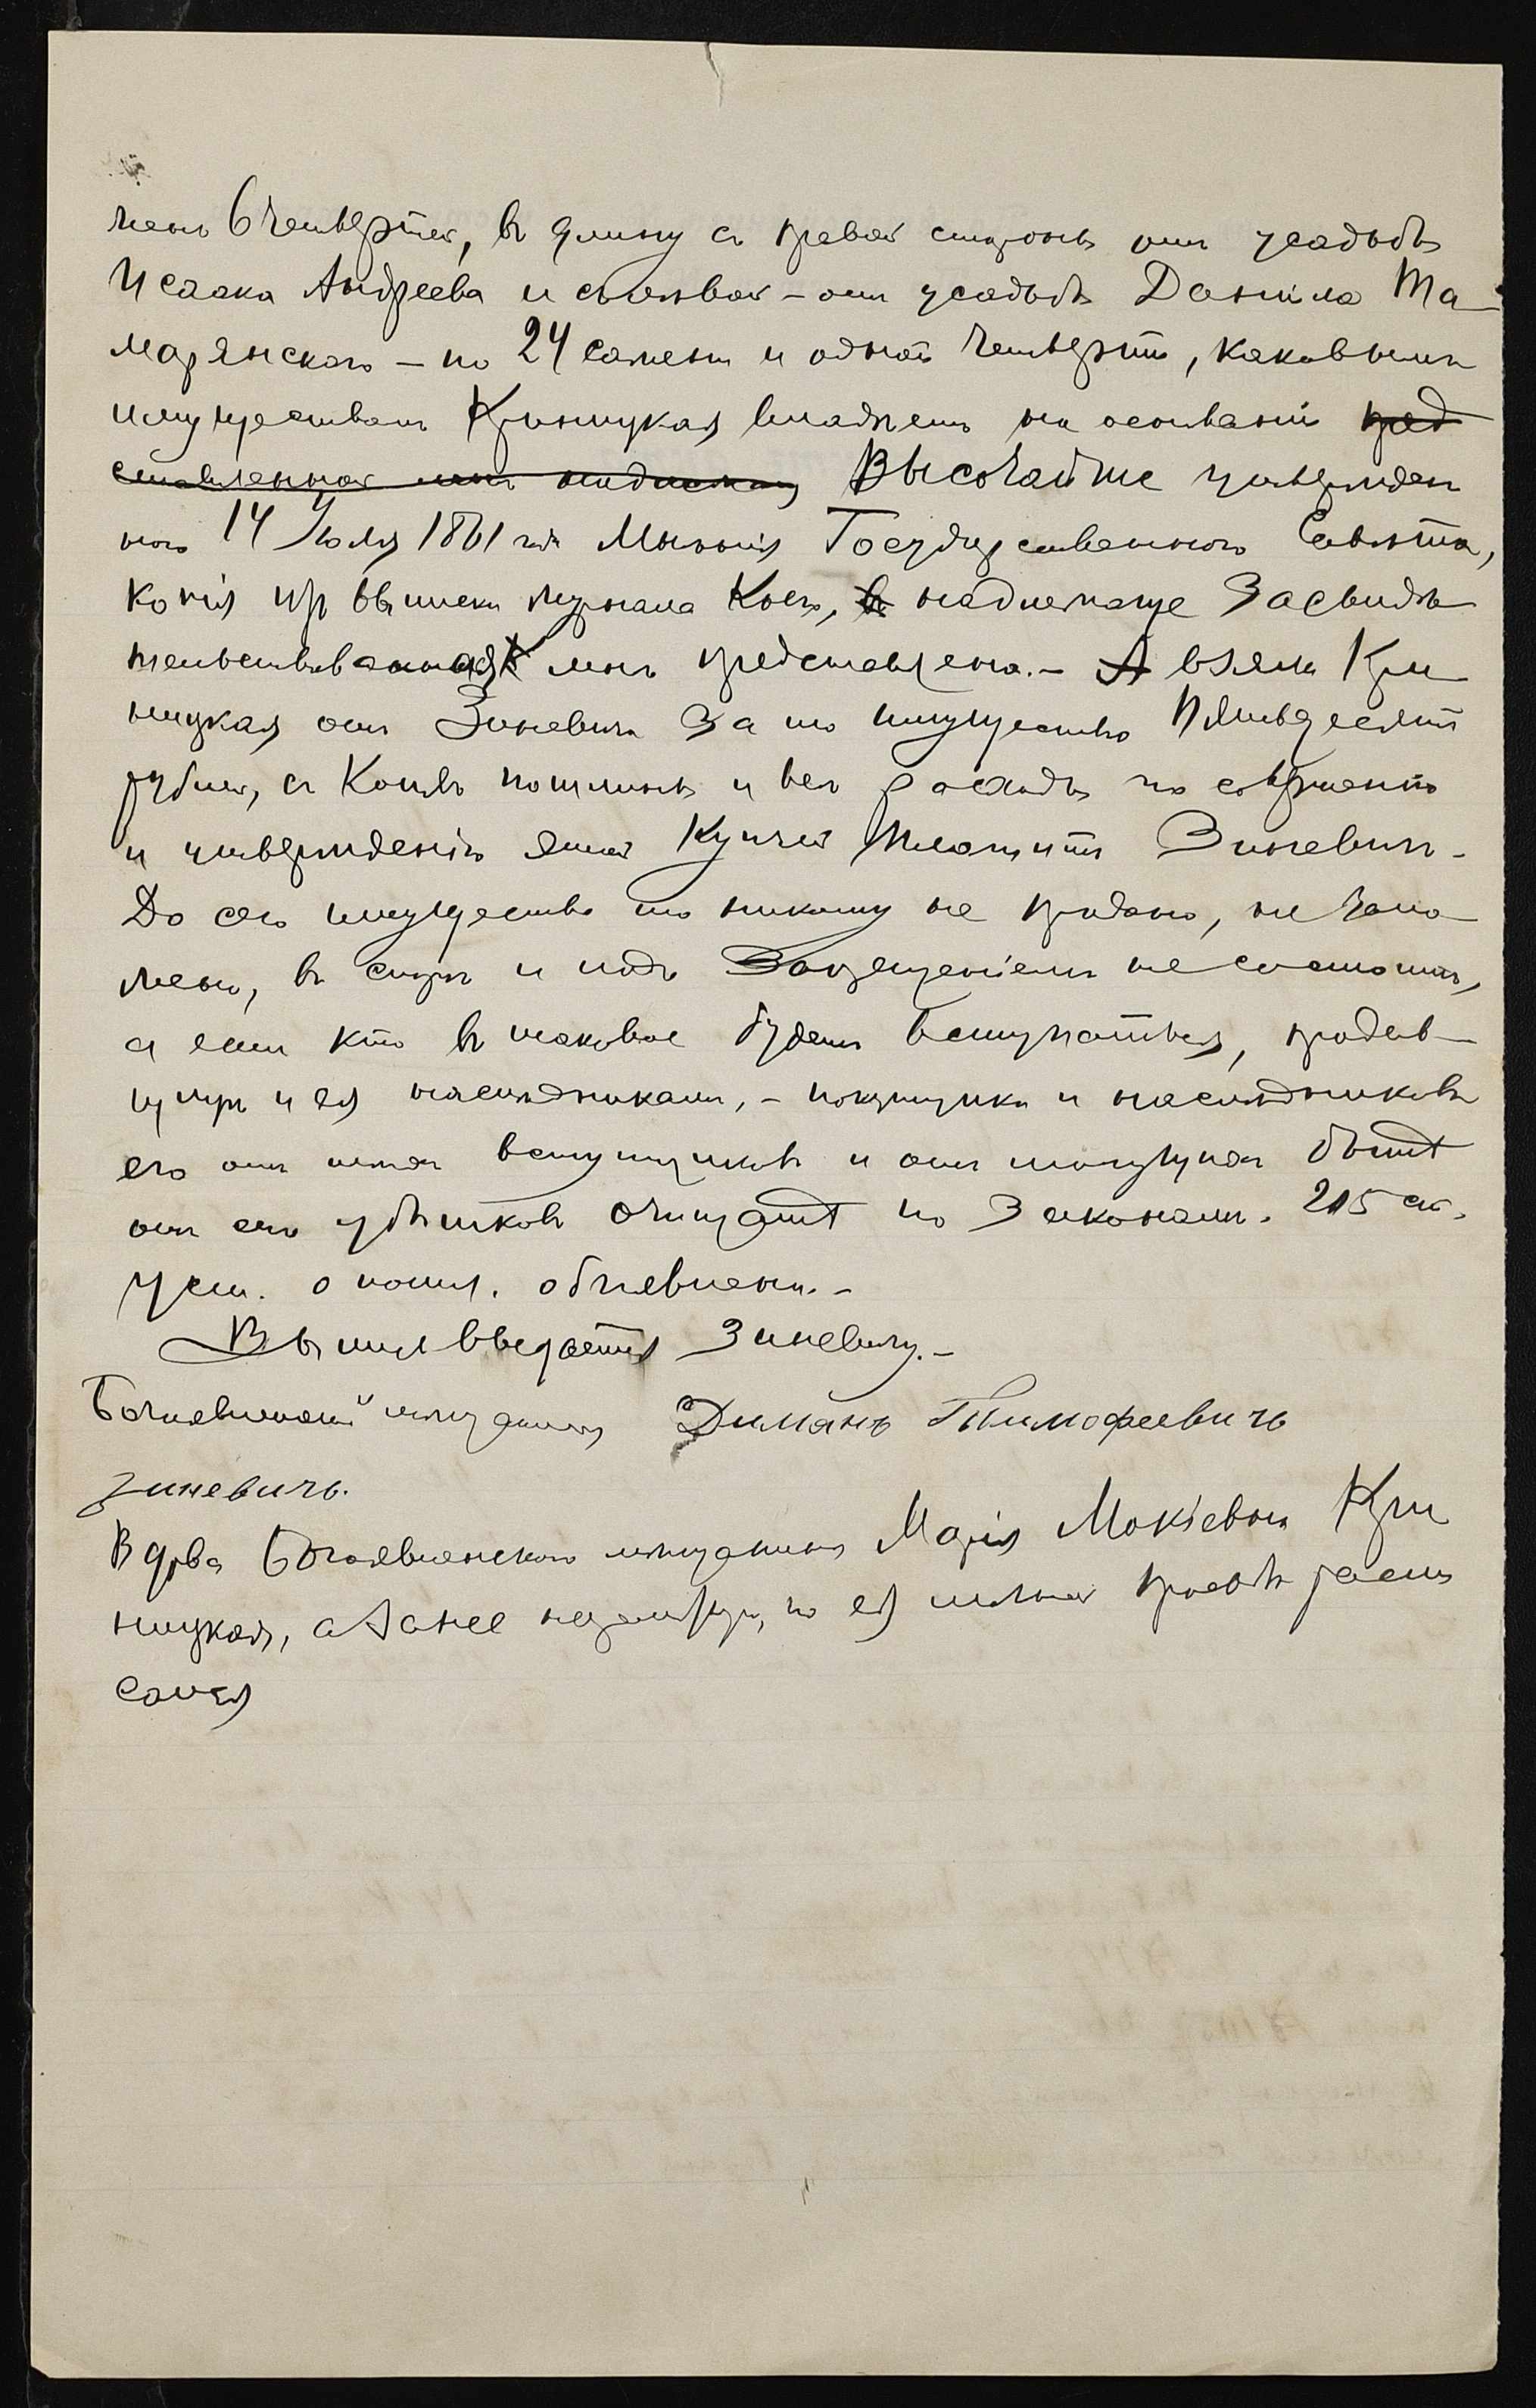 жень 6 четвертей, въ длину съ правой стороны отъ усадьбы
Исаака Андреева и съ лѣвой – отъ усадьбы Данiила Та-
марянскаго – по 24 сажени и одной четверти, каковымъ
имуществомъ Криницкая владѣетъ на основанiи пред
ставленной мнѣ Высочайше утвержден
наго 14 Iюля 1861 года Мнѣнiя Государственнаго Совѣта,
копiя изъ выписки журнала коего, надлежаще засвидѣ
тельствованная мнѣ представлена. – А взяла Кри
ницкая отъ Зиневича за то имущество пятьдесятъ
рублей, съ коихъ пошлины и все расходы по совершенiю
и утвержденiю этой купчей платитъ Зиневичъ. –
До сего имущество то никому не продано, не зало
жено, въ спорѣ и подъ запрещенiемъ не состоитъ,
а если кто въ таковое будетъ вступаться, продав-
щицѣ и ея наслѣдникамъ, – покупщика и наслѣдниковъ
его отъ тѣхъ вступщиковъ и отъ могущихъ быть
отъ его убытковъ очищать по законамъ. 215 ст.
Уст. о пошл. объявлена. –
Выпись выдается Зиневичу. –
Богоявленскiй мѣщанинъ Диманъ Тимофеевичъ
Зиневичъ.
Вдова Богоявленскаго мѣщанина Марiя Мокiевна Кри
ницкая, а за нее неграмотную, по ея личной просьбѣ расп
сался